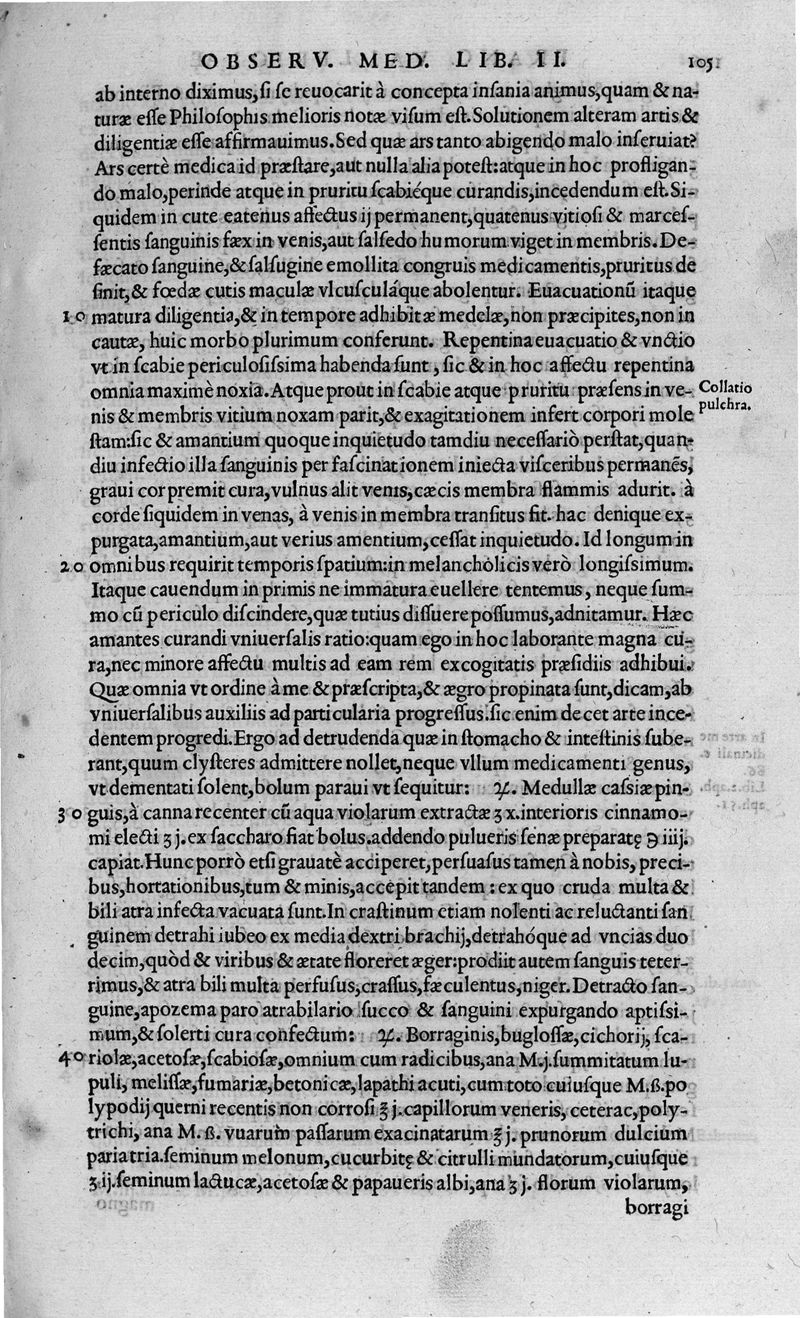 OBSERV. MED. LIB. II. 105
ab interno diximus, ſi ſe reuocarit à concepta inſania animus, quam & na-
turæ eſſe Philoſophis melioris notæ viſum eſt. Solutionem alteram artis &
diligentiæ eſſe affirmauimus. Sed quæ ars tanto abigendo malo inſeruiat?
Ars certè medica id præſtare, aut nulla alia poteſt: atque in hoc profligan-
do malo, perinde atque in pruritu ſcabiéque curandis, incedendum eſt. Si-
quidem in cute eatenus affectus ij permanent, quatenus vitioſi & marceſ-
ſentis ſanguinis fæx in venis, aut ſalſedo humorum viget in membris. De-
fæcato ſanguine, & ſalſugine emollita congruis medicamentis, pruritus de
ſinit, & fœdæ cutis maculæ vlcuſculáque abolentur. Euacuationũ itaque
10 matura diligentia, & in tempore adhibitæ medelæ, non præcipites, non in
cautæ, huic morbo plurimum conferunt. Repentina euacuatio & vnctio
vt in ſcabie periculoſiſsima habenda ſunt, ſic & in hoc affectu repentina
omnia maximè noxia. Atque prout in ſcabie atque pruritu præſens in ve-
Collatio
pulchra.
nis & membris vitium noxam parit, & exagitationem infert corpori mole
ſtam: ſic & amantium quoque inquietudo tamdiu neceſſariò perſtat, quan-
diu infectio illa ſanguinis per faſcinationem iniecta viſceribus permanẽs,
graui cor premit cura, vulnus alit venis, cæcis membra flammis adurit. à
corde ſiquidem in venas, à venis in membra tranſitus fit. hac denique ex-
purgata, amantium, aut verius amentium, ceſſat inquietudo. Id longum in
20 omnibus requirit temporis ſpatium: in melancholicis verò longiſsimum.
Itaque cauendum in primis ne immatura euellere tentemus, neque ſum-
mo cũ periculo diſcindere, quæ tutius diſſuere poſſumus, adnitamur. Hæc
amantes curandi vniuerſalis ratio: quam ego in hoc laborante magna cu-
ra, nec minore affectu multis ad eam rem excogitatis præſidiis adhibui.
Quæ omnia vt ordine à me & præſcripta, & ægro propinata ſunt, dicam, ab
vniuerſalibus auxiliis ad particularia progreſſus. ſic enim decet arte ince-
dentem progredi. Ergo ad detrudenda quæ in ſtomacho & inteſtinis ſube-
rant, quum clyſteres admittere nollet, neque vllum medicamenti genus,
vt dementati ſolent, bolum paraui vt ſequitur: ♃. Medullæ caſsiæ pin-
30 guis, à canna recenter cũ aqua violarum extractæ ʒ x. interioris cinnamo-
mi electi ʒ j. ex ſaccharo fiat bolus. addendo pulueris ſenæ preparatę ℈ iiij.
capiat. Hunc porrò etſi grauatè acciperet, perſuaſus tamen à nobis, preci-
bus, hortationibus, tum & minis, accepit tandem: ex quo cruda multa &
bili atra infecta vacuata ſunt. In craſtinum etiam nolenti ac reluctanti ſan
guinem detrahi iubeo ex media dextri brachij, detrahóque ad vncias duo
decim, quòd & viribus & ætate floreret æger: prodiit autem ſanguis teter-
rimus, & atra bili multa perfuſus, craſſus, fæculentus, niger. Detracto ſan-
guine, apozema paro atrabilario ſucco & ſanguini expurgando aptiſsi-
mum, & ſolerti cura confectum: ♃. Borraginis, bugloſſæ, cichorij, ſca-
40 riolæ, acetoſæ, ſcabioſæ, omnium cum radicibus, ana M. j. ſummitatum lu-
puli, meliſſæ, fumariæ, betonicæ, lapathi acuti, cum toto cuiuſque M. ß. po
lypodij querni recentis non corroſi ℥ j. capillorum veneris, ceterac, poly-
trichi, ana M. ß. vuarum paſſarum exacinatarum ℥ j. prunorum dulcium
paria tria. ſeminum melonum, cucurbitę & citrulli mundatorum, cuiuſque
ʒ ij. ſeminum lactucæ, acetoſæ & papaueris albi, ana ʒ j. florum violarum,
borragi